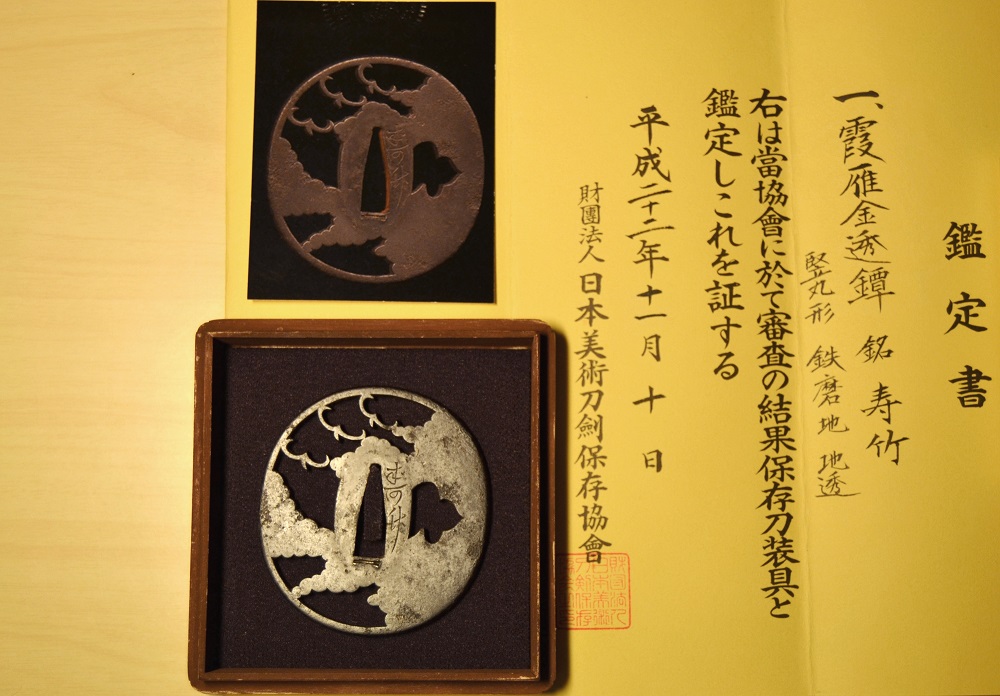 鑑定書
一、霞雁金透鐔 銘 寿竹
竪丸形 鉄磨地 地透
右は當協會に於て審査の結果保存刀装具と
鑑定しこれを証する
平成二十二年十一月十日
財團法人 日本美術刀劍保存協會